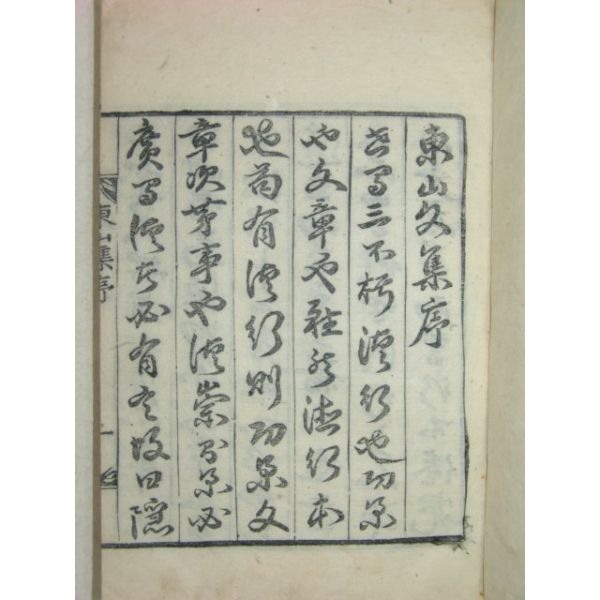 東山文集序
世間三不朽德行也功業
也文章也雖然德行本
也苟有德行則功業文
章次第事也德崇者業必
廣有德者必有言故曰隱
東山集序
一